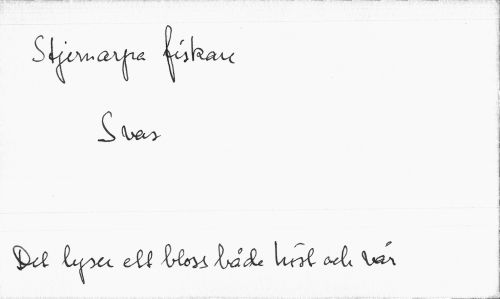 Stjernarpa fiskare
Svar
Det lyser ett bloss både höst och vår